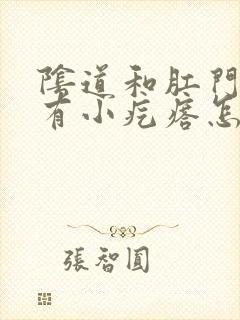 陰道和肛門
有小疙瘩怎
張智圓